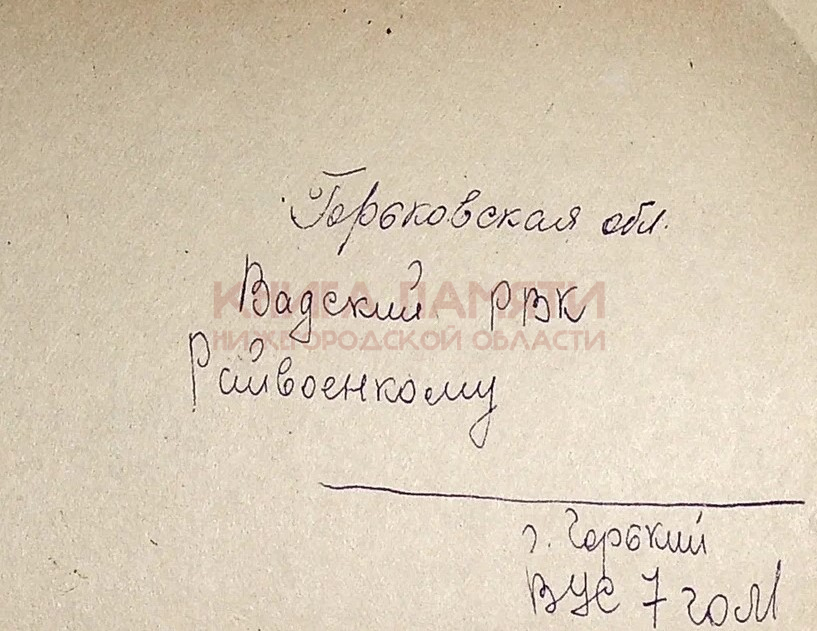 Горьковская обл.
Вадский РВК
КНИГА ПАМЯТИ
НИЖЕГОРОДСКОЙ ОБЛАСТИ
Райвоенкому
г. Горький
ВУС 7 гом